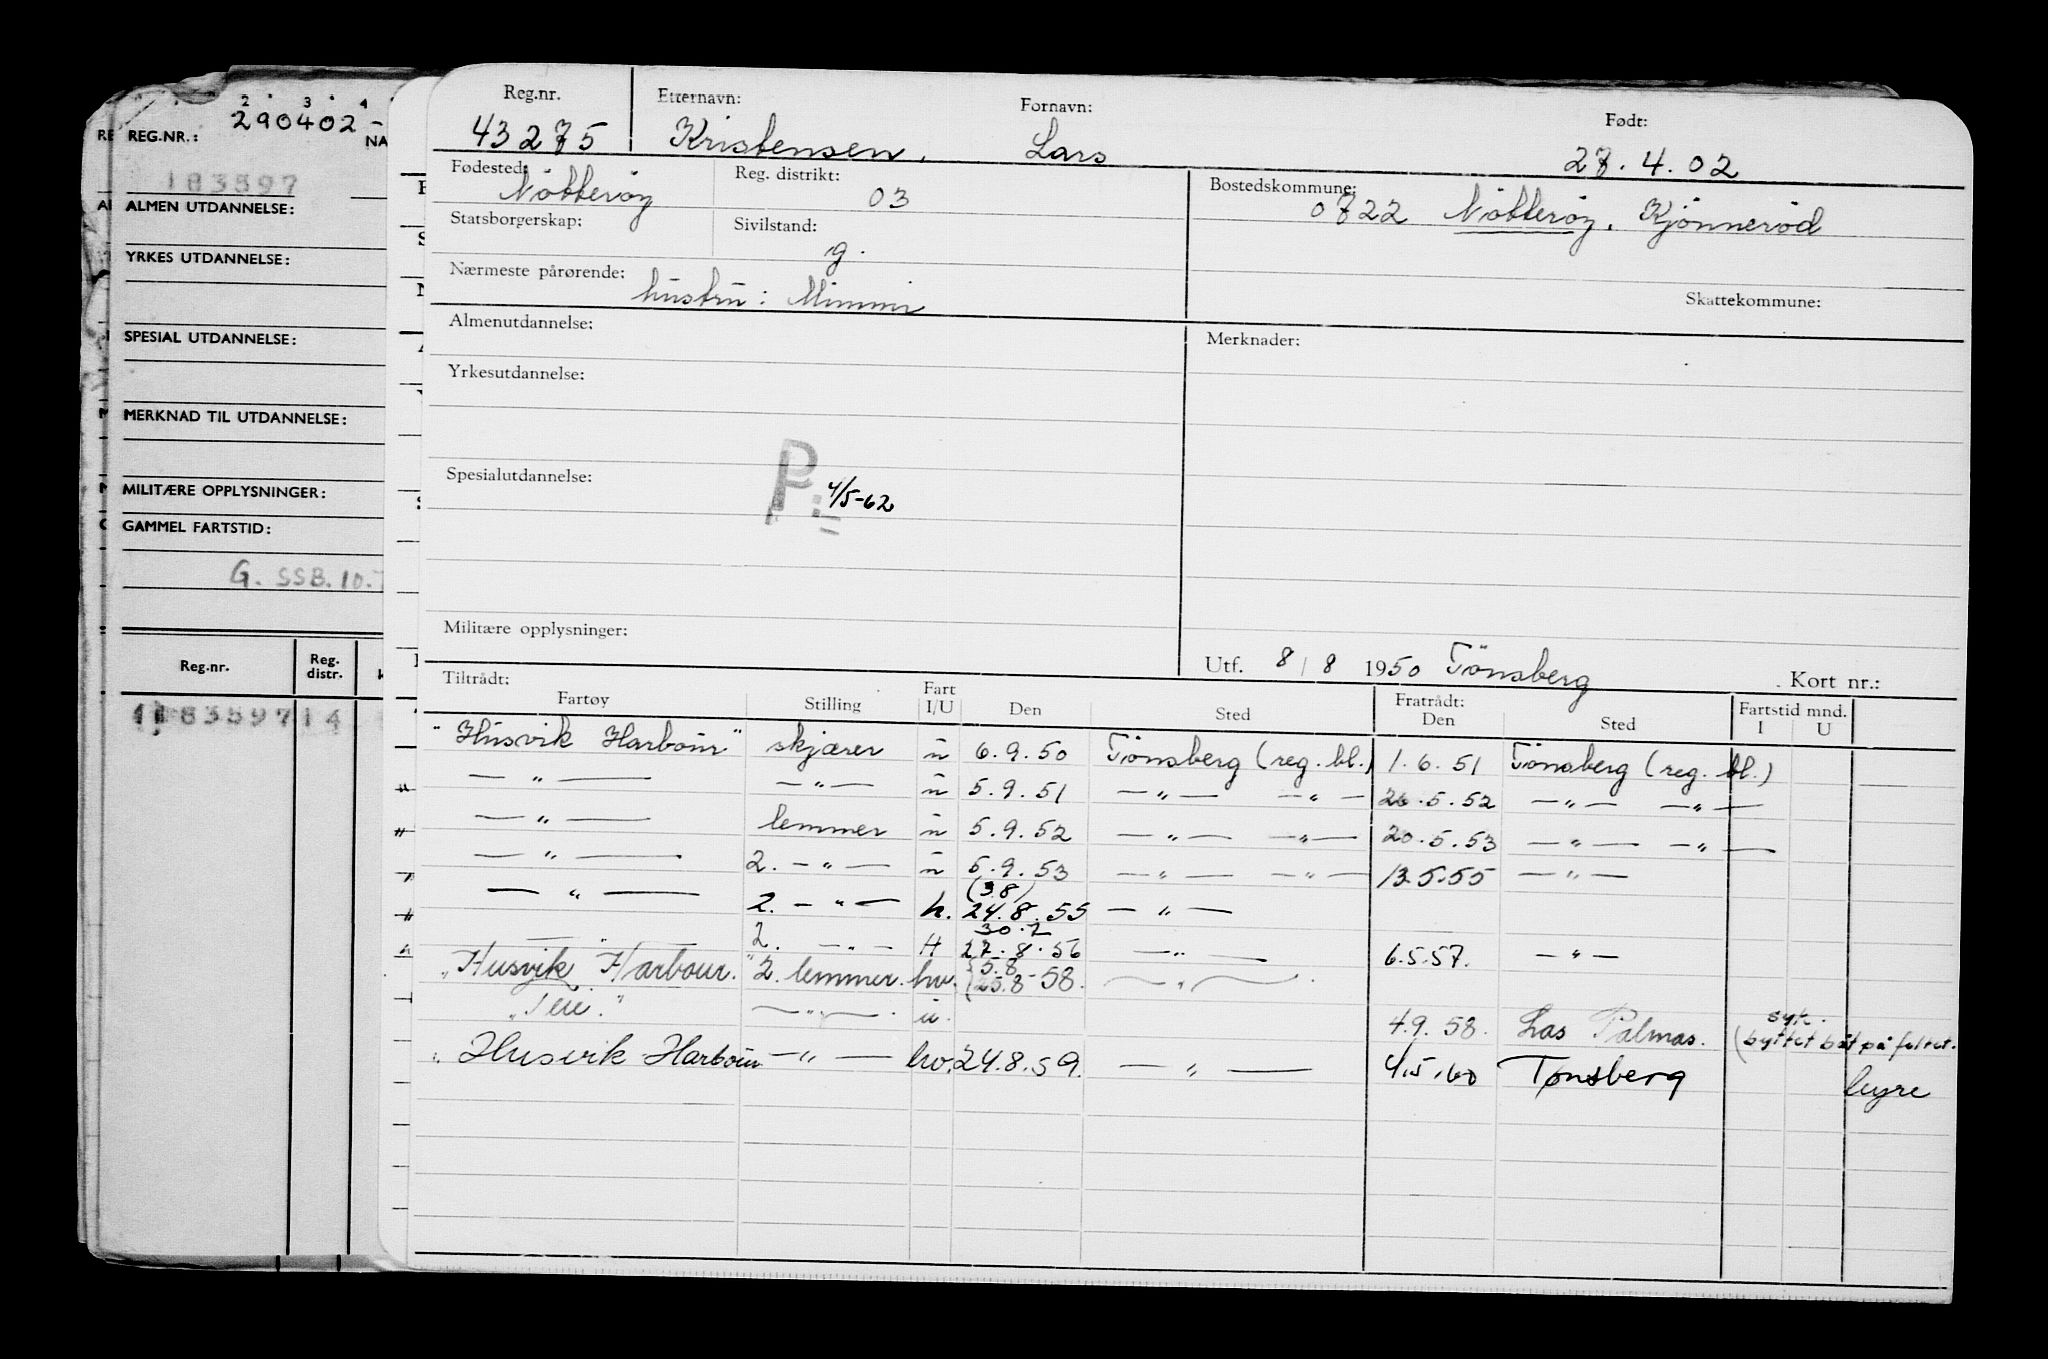 REG.NR.: 290402-
NA
183597
ALMEN UTDANNELSE:
YRKES UTDANNELSE:
SPESIAL UTDANNELSE:
MERKNAD TIL UTDANNELSE:
MILITÆRE OPPLYSNINGER:
GAMMEL FARTSTID:
G. SSB. 10.
Reg.nr. Reg. distr.
183597 14
Reg.nr. Etternavn: Fornavn: Født:
43275 Kristensen, Lars 27.4.02
Fødested: Reg. distrikt: Bostedskommune:
Nötteröy 03 0722 Nötteröy, Kjönneröd
Statsborgerskap: Sivilstand:
g.
Nærmeste pårørende: Skattekommune:
hustru: Mimmi
Almenutdannelse: Merknader:
Yrkesutdannelse:
Spesialutdannelse:
P. 4/5-62
Militære opplysninger:
Utf. 8/8 1950 Tönsberg Kort nr.:
Tiltrådt: Fratrådt: Fartstid mnd.
Fartøy Stilling Fart I/U Den Sted Den Sted I U
"Husvik Harbour" skjærer u 6.9.50 Tönsberg (reg. bl.) 1.6.51 Tönsberg (reg. bl.)
— " — — " — u 5.9.51 — " — — " — 26.5.52 — " — — " —
— " — lemmer u 5.9.52 — " — — " — 20.5.53 — " — — " —
— " — 2. — " — u 5.9.53 — " — — " — 13.5.55 — " —
(3.8)
— " — 2. — " — h. 24.8.55 — " —
30.7
— " — 2. — " — H 27.8.56 — " — 6.5.57. — " —
5.8
"Husvik Harbour." 2. lemmer. hv. (25.8-58. — " —.
— " —. u. 4.9.58. Las Palmas. syk. (byttet båt på feltet.
" Husvik Harbour — " — hv. 24.8.59. — " — 4.5.60 Tønsberg hyre